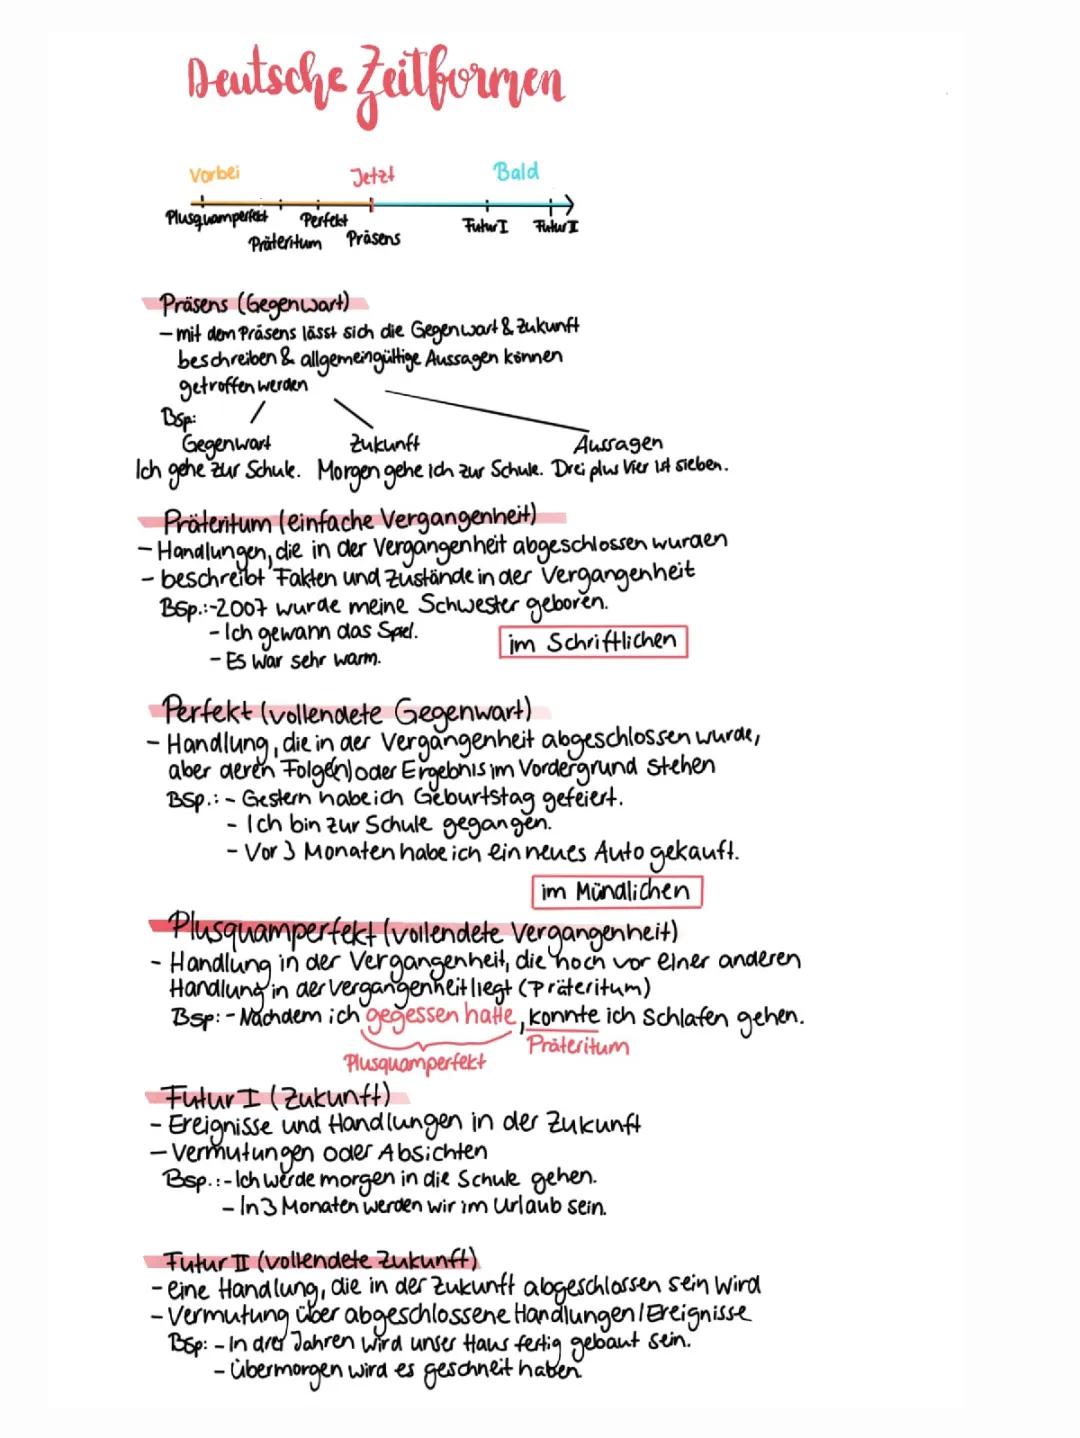 Deutsche Zeitformen
Vorbei Jetzt Bald
Plusquamperfekt Perfekt Futur I Futur II
Präteritum Präsens
Präsens (Gegenwart)
- mit dem Präsens lässt sich die Gegenwart & Zukunft
beschreiben & allgemeingültige Aussagen können
getroffen werden
Bsp:
Gegenwart Zukunft Aussagen
Ich gehe zur Schule. Morgen gehe ich zur Schule. Drei plus Vier ist sieben.
Präteritum (einfache Vergangenheit)
- Handlungen, die in der Vergangenheit abgeschlossen wurden
- beschreibt Fakten und Zustände in der Vergangenheit
Bsp.: - 2007 wurde meine Schwester geboren.
- Ich gewann das Spiel.
im Schriftlichen
- Es war sehr warm.
Perfekt (vollendete Gegenwart)
- Handlung, die in der Vergangenheit abgeschlossen wurde,
aber deren Folge(n) oder Ergebnis im Vordergrund stehen
Bsp.: - Gestern habe ich Geburtstag gefeiert.
- Ich bin zur Schule gegangen.
- Vor 3 Monaten habe ich ein neues Auto gekauft.
im Mündlichen
Plusquamperfekt (vollendete Vergangenheit)
- Handlung in der Vergangenheit, die noch vor einer anderen
Handlung in der Vergangenheit liegt (Präteritum)
Bsp: - Nachdem ich gegessen hatte, konnte ich schlafen gehen.
Präteritum
Plusquamperfekt
Futur I (Zukunft)
- Ereignisse und Handlungen in der Zukunft
- Vermutungen oder Absichten
Bsp.: - Ich werde morgen in die Schule gehen.
- In 3 Monaten werden wir im Urlaub sein.
Futur II (vollendete Zukunft)
- eine Handlung, die in der Zukunft abgeschlossen sein wird
- Vermutung über abgeschlossene Handlungen/Ereignisse
Bsp: - In drei Jahren wird unser Haus fertig gebaut sein.
- Übermorgen wird es geschneit haben.